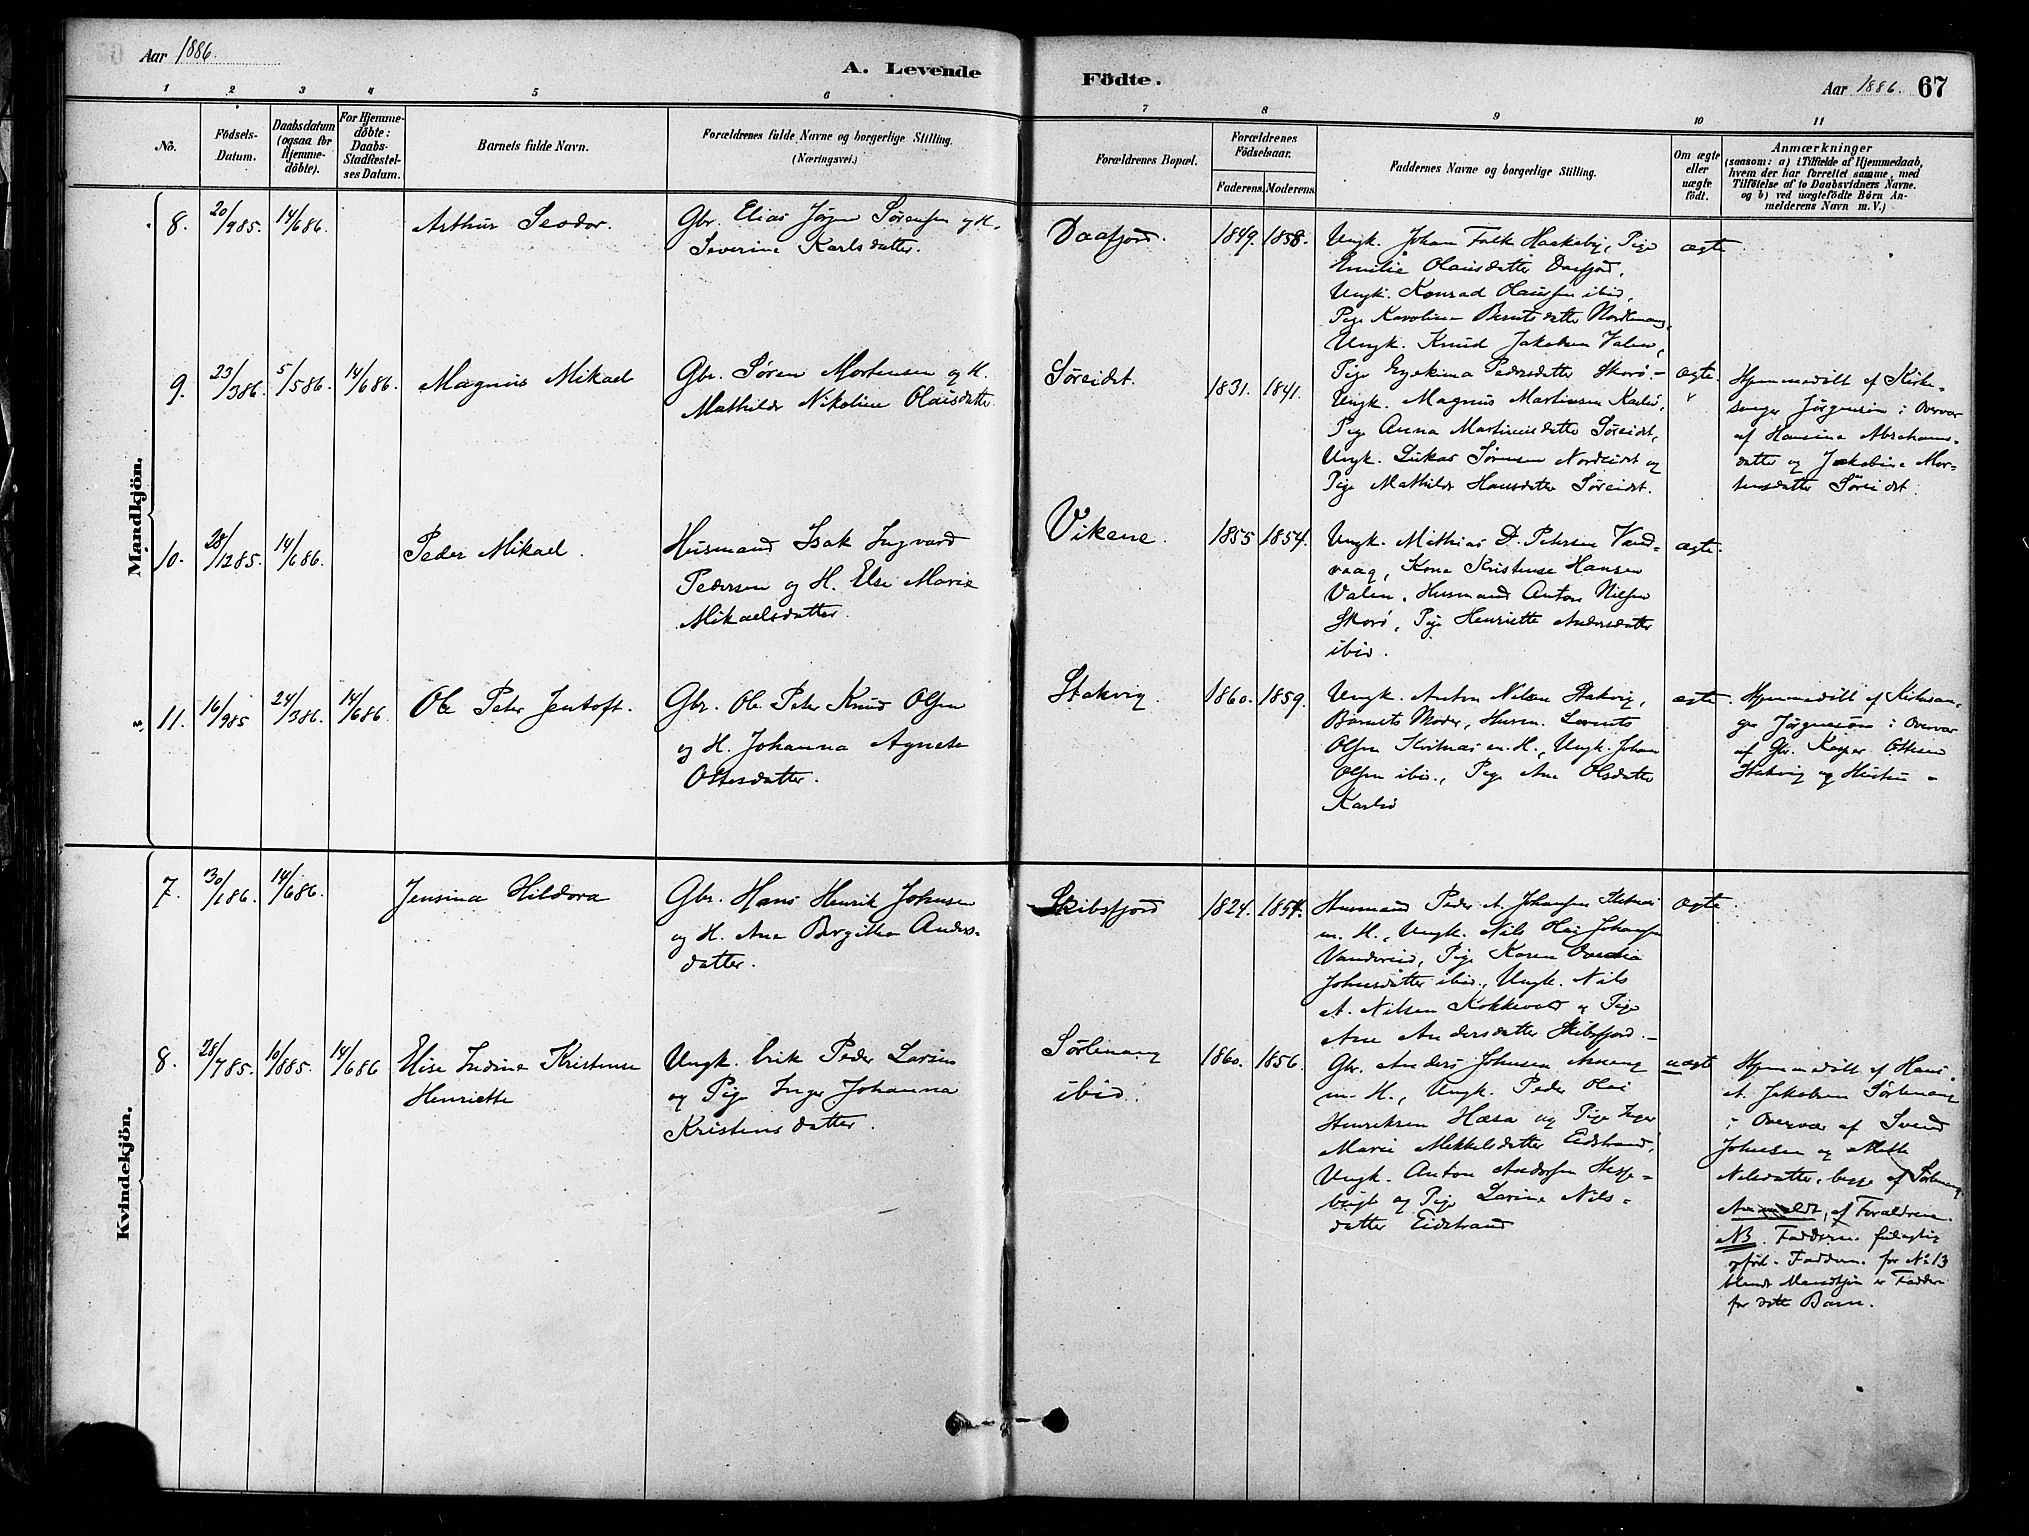 Aar 1886.
A. Levende Födte.
Aar 1886. 67
1 2 3 4 5 6 7 8 9 10 11
No.
Födsels-
Datum.
Daabsdatum
(ogsaa for
Hjemme-
döbte).
For Hjemme-
döbte:
Daabs-
Stadfestel-
ses Datum.
Barnets fulde Navn.
Forældrenes fulde Navne og borgerlige Stilling.
(Næringsvei.)
Forældrenes Bopæl.
Forældrenes
Födselsaar.
Faderens. Moderens.
Faddernes Navne og borgerlige Stilling.
Om ægte
eller
uægte
födt.
Anmærkninger
(saasom: a) i Tilfælde af Hjemmedaab,
hvem der har forrettet samme, med
Tilföielse af to Daabsvidners Navne.
og b) ved uægtefödte Börn An-
melderens Navn m. V.)
Mandkjön.
8. 20/985. 14/686.
Arthur Seodor.
Gbr. Elias Jörgen Sørensen og H.
Severine Karlsdatter.
Daafjord.
1849. 1858.
Ungk. Johan Falk Haakeby, Pige
Emilie Olausdatter Daafjord,
Ungk. Konrad Olaussen ibid,
Pige Karoline Berntsdatter Nordlenang,
Ungk. Knud Jakobsen Valen,
ægte
9. 23/386. 5/586. 14/686.
Magnus Mikael
Gbr. Søren Mortensen og H.
Mathilde Nikoline Olaisdatter.
Søreidet.
1831. 1841.
Pige Pedersdatter Skorö.-
Ungk. Magnus Martinsen Karlsö,
Pige Anna Martinusdatter Søreidet,
Ungk. Lukas Sørensen Nordeidet og
Pige Mathilde Hansdatter Søreidet.
ægte.
Hjemmedöbt af Kirke-
sanger Jørgensen i Overvær
af Hansina Abrahams-
datter og Jakobine Mor-
tensdatter Søreidet.
10. 28/1285. 14/686.
Peder Mikael.
Husmand Isak Ingvard
Pedersen og H. Else Marie
Mikaelsdatter.
Vikene.
1855 1854.
Ungk. Mathias D. Petersen Vand-
vaag, Kone Kristense Hansen
Valen, Husmand Anton Nilsen
Skorö, Pige Henriette Andersdatter
ibid.
ægte.
11. 16/985 24/386. 14/686.
Ole Peter Jentoft.
Gbr. Ole Peter Knud Olsen
og H. Johanna Agnete
Ottesdatter.
Stakvig
1860. 1859.
Ungk. Anton Nilsen Stakvig,
Barnets Moder, Husm. Lorents
Olsen Kvitnæs m. H., Ungk. Johan
Olsen ibid., Pige Ane Olsdatter
Karlsö
ægte.
Hjemmedöbt af Kirkesan-
ger Jørgensen i Overvær
af Gbr. Kasper Ottesen
Stakvig og Hustru -
Kvindekjön.
7. 30/186. 14/686.
Jensina Hildora
Gbr. Hans Henrik Johnsen
og H. Ane Bergitha Anders-
datter.
Skibsfjord
1824. 1854.
Husmand Peder A. Johansen
m. H., Ungk. Nils Olai Johansen
Vandereid, Pige Karen Ovedia
Johnsdatter ibid., Ungk. Nils
A. Nilsen Kokkevold og Pige
Ane Andersdatter Skibsfjord.-
ægte
8. 28/785. 10/885. 14/686
Elise Indina Kristense
Henriette
Ungk. Erik Peder Larsen
og Pige Inger Johanna
Kristensdatter.
Sørlenang
ibid.
1860. 1856.
Gbr. Anders Johnsen
m. H., Ungk. Peder Olai
Henriksen Hæsa og Pige Inger
Marie Mikkelsdatter Eidstrand,
Ungk. Anton Andersen Hesse-
bugt og Pige Larine Nils-
datter Eidstrand
uægte
Hjemmedöbt af Hans
A. Jakobsen Sørlenang
i Overvær af Svend
Johnsen og Mette
Nilsdatter, begge af Sørlenang.
Anmeldt af Forældrene.
NB. Fadderne feilagtig
opfört. Fadderne for No 13
blandt Mandkjön er Faddere
for dette Barn.